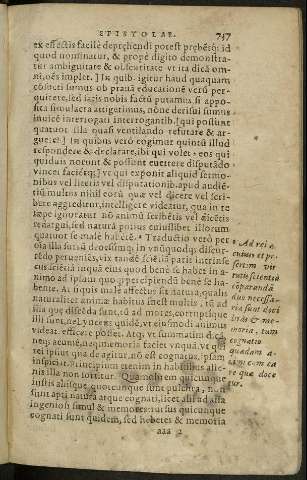 EPISTOLAE. 747
ex effectis facilè deprehendi potest
quod nominatur, & propè digito demonstra-
tur ambiguitate & obscuritate vt ita dicā om-
ni,
cōsiti sumus ob praua educationē verū per-
quirere, sed satis nobis factū putamus si appo-
sita simulacra attigerimus, nēne derisui sumus
inuicē interrogati interrogantib. [qui possunt
quatuor illa quasi ventilando refutare & ar-
guere.] In quibus verò cogimur quintū illud
respondere & declarare, ibi qui volet eos qui
quiduis norunt & possunt euertere disputādo
vincet facietq; vt qui exponit aliquid sermo-
nibus vel literis vel disputationib. apud audiē-
tiū multos nihil eorū quæ vel dicere vel scri-
bere aggreditur, intelligere videatur, qua in re
sæpe ignoratur nō animū scribētis vel dicētis
redargui, sed naturā potius cuiuslibet illorum
quatuor se malè habere. Traductio verò per
oīa illa sursū deorsūq; in vnūquodq; discur-
rēdo perueniēs, vix tandē
cui scientiā inqua eius quod benè se habet in a-
nimo ad ipsum quoq; percipiendū benè se ha-
bente. At si quis malè affectus sit natura, qualis
naturaliter animæ habitus inest multis, tū ad
ista quę discēda sunt, tū ad mores, corruptíque
illi sunt, nè Lynceus quidē, vt eiusmodi animus
videat efficere posset. Atq; vt summatim dicā
neq; acumē, neq; memoria faciet vnquā vt qui
rei ipsius qua de agitur, nō est cognatus, ipsam
inspiciat. Principium etenim in habitibus alie-
nis illa non tollitur. Quamobrem quicunque
iustis aliisque quotcunque sunt pulchra,
sunt apti natura atque cognati, licet alii ad alia
ingeniosi simul & memores: rursus quicunque
cognati sunt quidem, sed hebetes & memoria
aaa 2
Ad rei a-
cuius et pe-
serim vir-
tutis scientiā
cōparandā
duo necessa-
ria sunt doci
litas & me-
moria, tum
cognatio
quædam a-
nimæ cum ea
re quæ doce
tur.